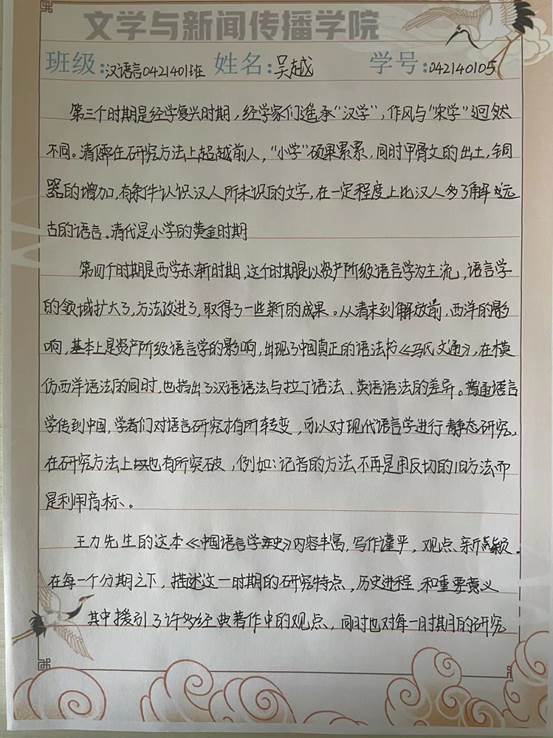 文学与新闻传播学院
班级:汉语言0421401班 姓名:吴越 学号:042140105
第三个时期是经学复兴时期,经学家们遥承“汉学”,作风与“宋学”迥然
不同。清儒在研究方法上超越前人,“小学”硕果累累,同时甲骨文的出土,铜
器的增加,有条件认识汉人所未识的文字,在一定程度上比汉人多了解远
古的语言。清代是小学的黄金时期
第四个时期是西学东渐时期,这个时期是以资产阶级语言学为主流,语言学
的领域扩大了,方法改进了,取得了一些新的成果。从清末到解放前,西洋的影
响,基本上是资产阶级语言学的影响,出现了中国真正的语法书《马氏文通》,在模
仿西洋语法的同时,也指出了汉语语法与拉丁语法、英语语法的差异。普通语言
学传到中国,学者们对语言研究有所转变,可以对现代语言学进行静态研究。
在研究方法上也有所突破,例如:记音的方法不再是用反切的旧方法而
是利用音标、。
王力先生的这本《中国语言学史》内容丰富,写作谨严,观点新颖。
在每一个分期之下,描述这一时期的研究特点,历史进程,和重要意义
其中援引了许多经典著作中的观点,同时也对每一时期的研究